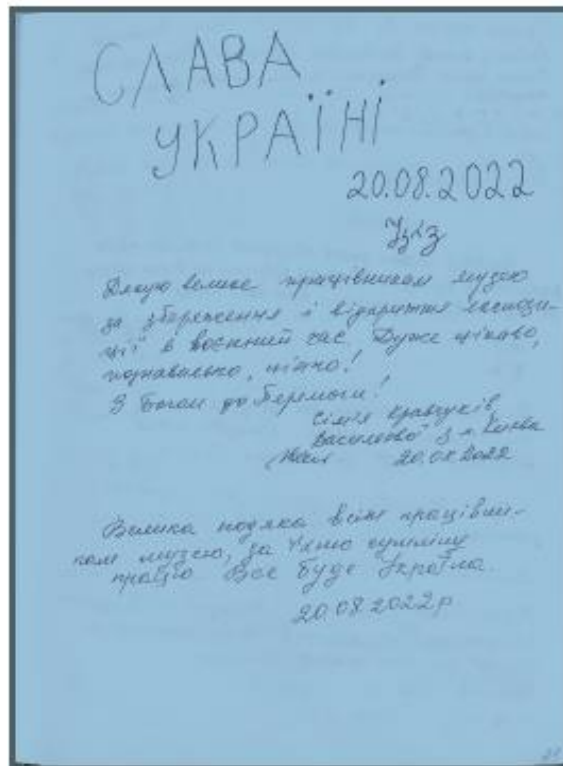 СЛАВА
УКРАЇНІ
20.08.2022
Дякую велике працівникам музею
за збереження і відкриття експози-
ції в воєнний час. Дуже цікаво,
пізнавально, цінно!
З Богом до Перемоги!
Сім'я Кравчуків,
Василевої з м. Києва
20.08.2022
Велика подяка всім працівни-
кам музею, за їхню сумлінну
працю Все буде Україна.
20.08.2022р